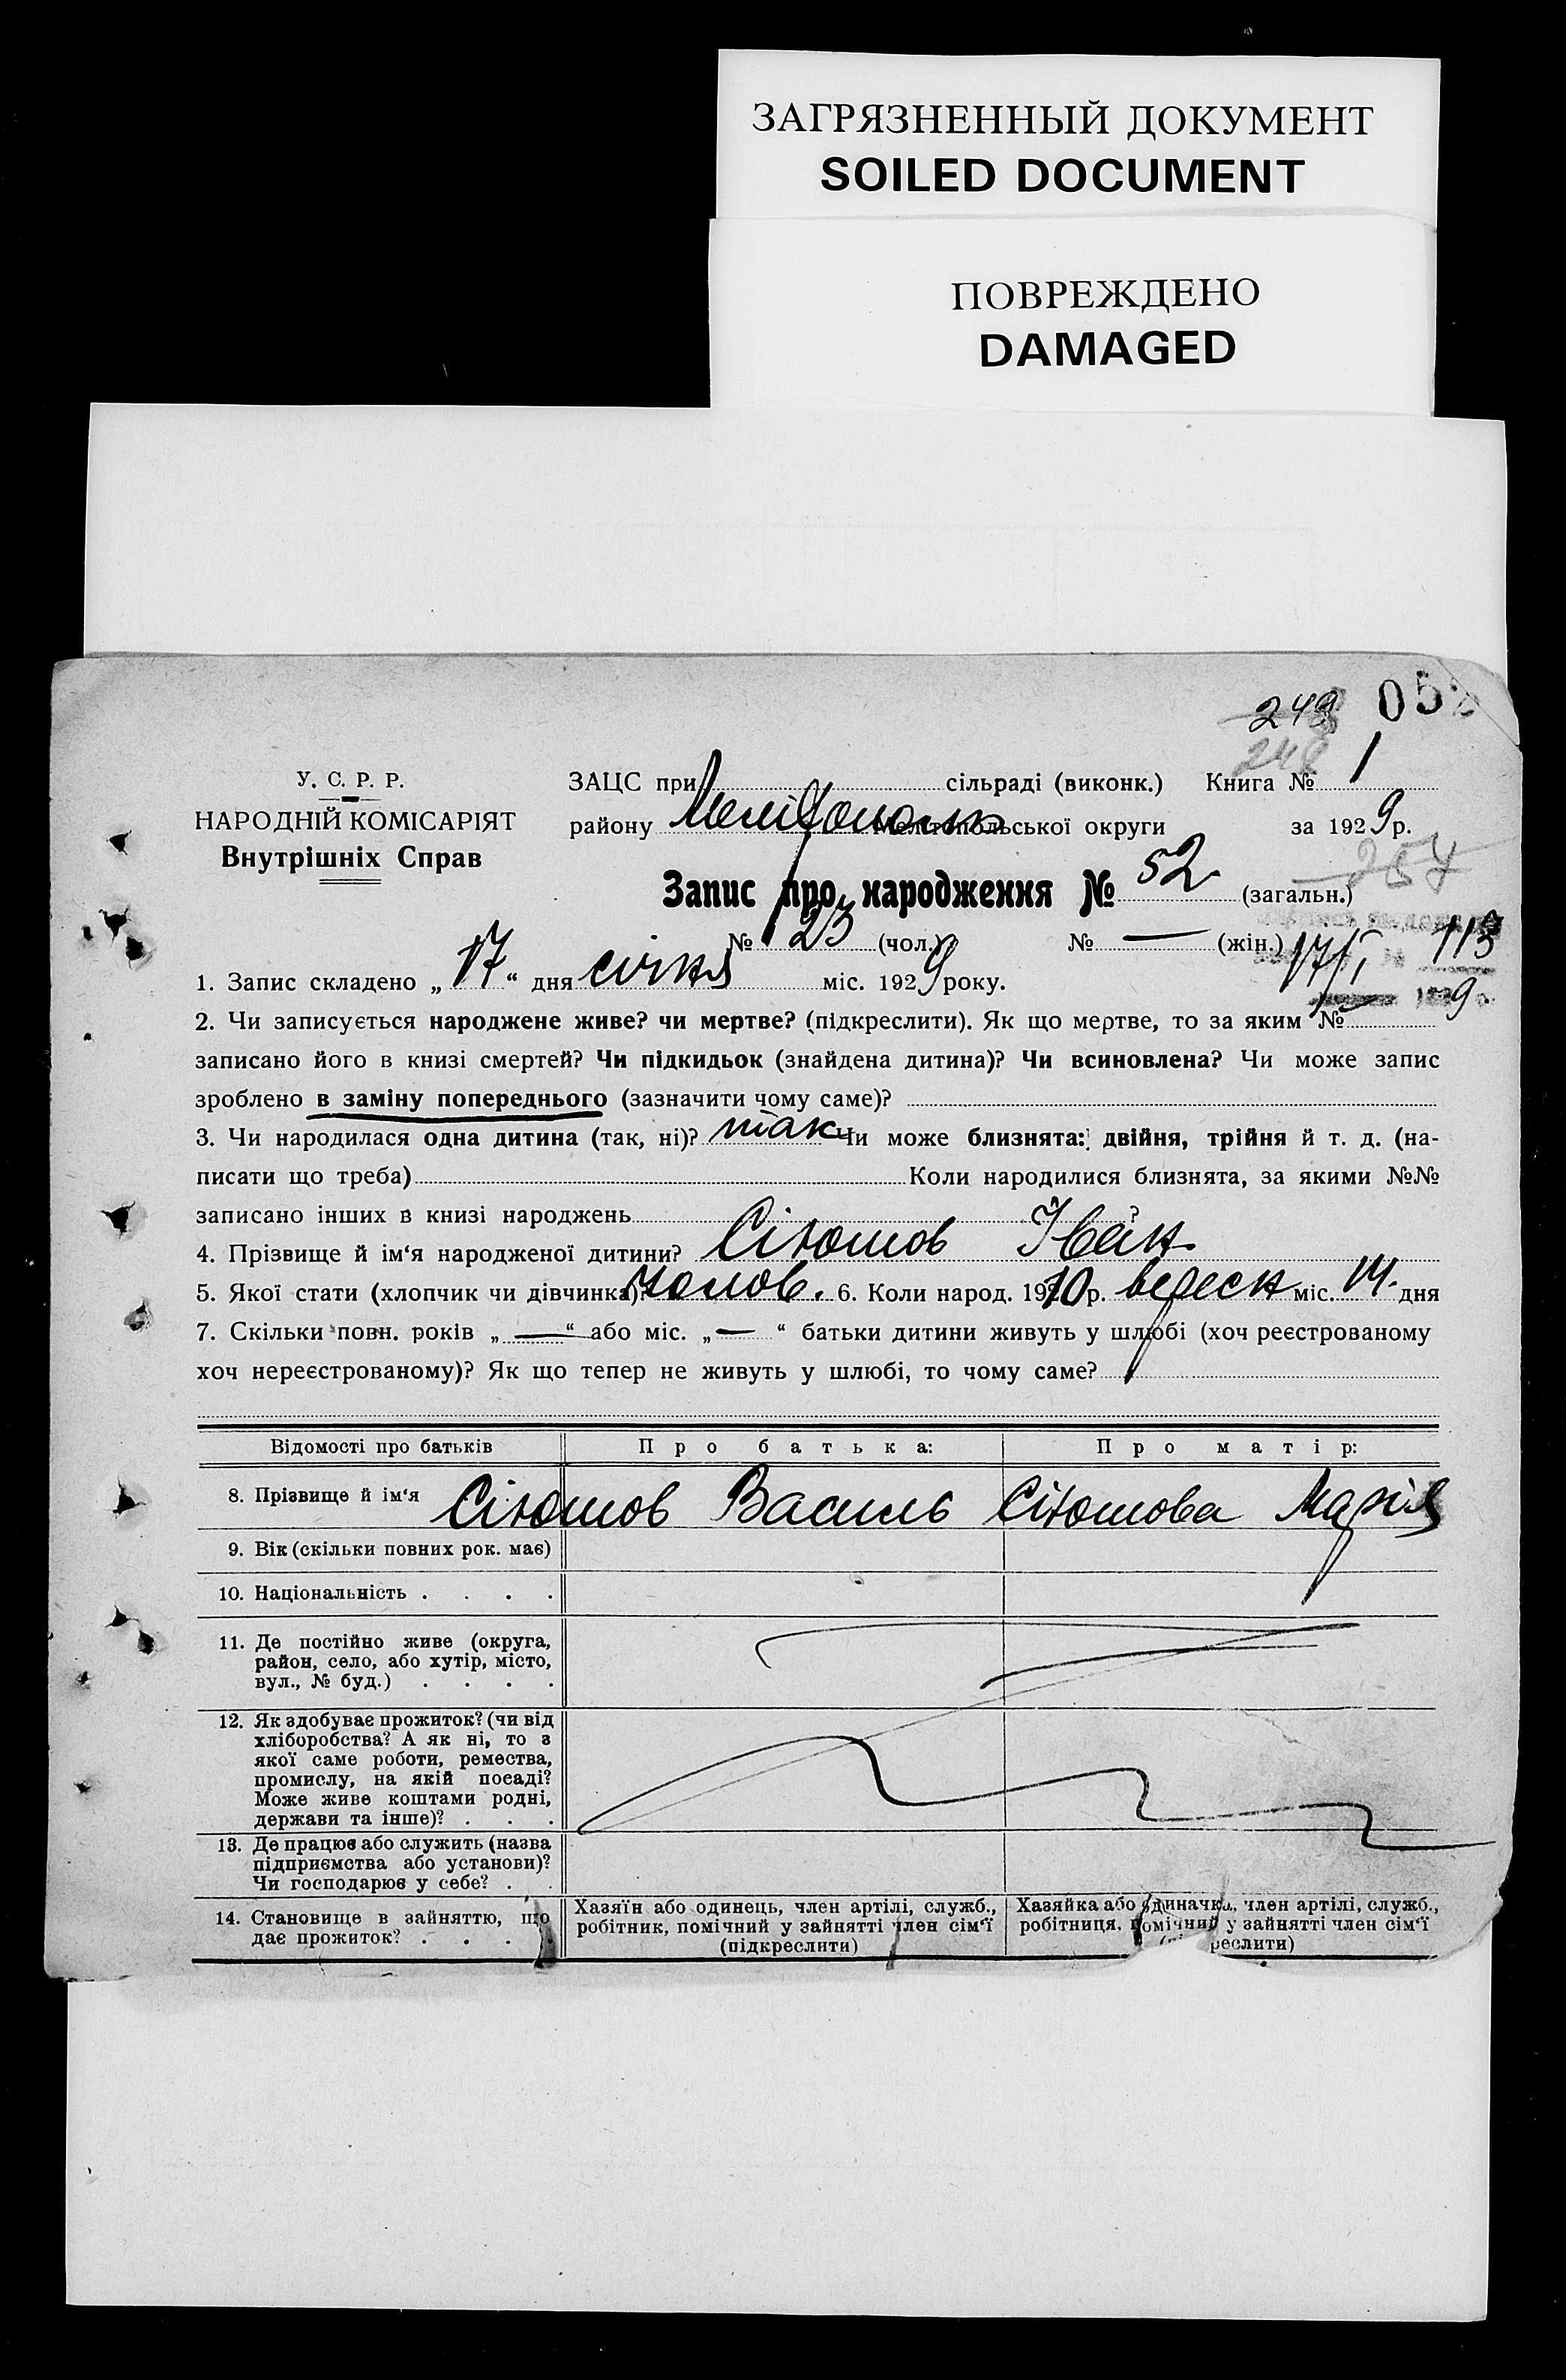 ЗАГРЯЗНЕННЫЙ ДОКУМЕНТ
SOILED DOCUMENT
ПОВРЕЖДЕНО
DAMAGED
249 052
248
У. С. Р. Р.
НАРОДНІЙ КОМІСАРІЯТ
Внутрішніх Справ
ЗАЦС при сільраді (виконк.) Книга № 1
району Мелітопольск Мелітопольської округи за 1929 р.
257
Запис про народження № 52 (загальн.)
№ 23 (чол.) № — (жін.) 17/I 113
1. Запис складено „17“ дня січня міс. 1929 року. 9
2. Чи записується народжене живе? чи мертве? (підкреслити). Як що мертве, то за яким №
записано його в книзі смертей? Чи підкидьок (знайдена дитина)? Чи всиновлена? Чи може запис
зроблено в заміну попереднього (зазначити чому саме)?
3. Чи народилася одна дитина (так, ні)? так Чи може близнята: двійня, трійня й т. д. (на-
писати що треба) Коли народилися близнята, за якими №№
записано інших в книзі народжень ?
4. Прізвище й ім‘я народженої дитини? Сітошов Іван
5. Якої стати (хлопчик чи дівчинка)? чолов. 6. Коли народ. 1910 р. вересн міс. 14. дня
7. Скільки повн. років „—“ або міс. „—“ батьки дитини живуть у шлюбі (хоч реєстрованому
хоч нереєстрованому)? Як що тепер не живуть у шлюбі, то чому саме?
Відомості про батьків Про батька: Про матір:
8. Прізвище й ім‘я Сітошов Василь Сітошова Марія
9. Вік (скільки повних рок. має)
10. Національність . . . .
11. Де постійно живе (округа,
район, село, або хутір, місто,
вул., № буд.) . . . .
12. Як здобуває прожиток? (чи від
хліборобства? А як ні, то з
якої саме роботи, ремества,
промислу, на якій посаді?
Може живе коштами родні,
держави та інше)? . . .
13. Де працює або служить (назва
підприємства або установи)?
Чи господарює у себе? . .
14. Становище в зайняттю, що
дає прожиток? . . . .
Хазяїн або одинець, член артілі, служб.,
робітник, помічний у зайнятті член сім‘ї
(підкреслити)
Хазяйка або одиначка, член артілі, служб.,
робітниця, помічний у зайнятті член сім‘ї
реслити)